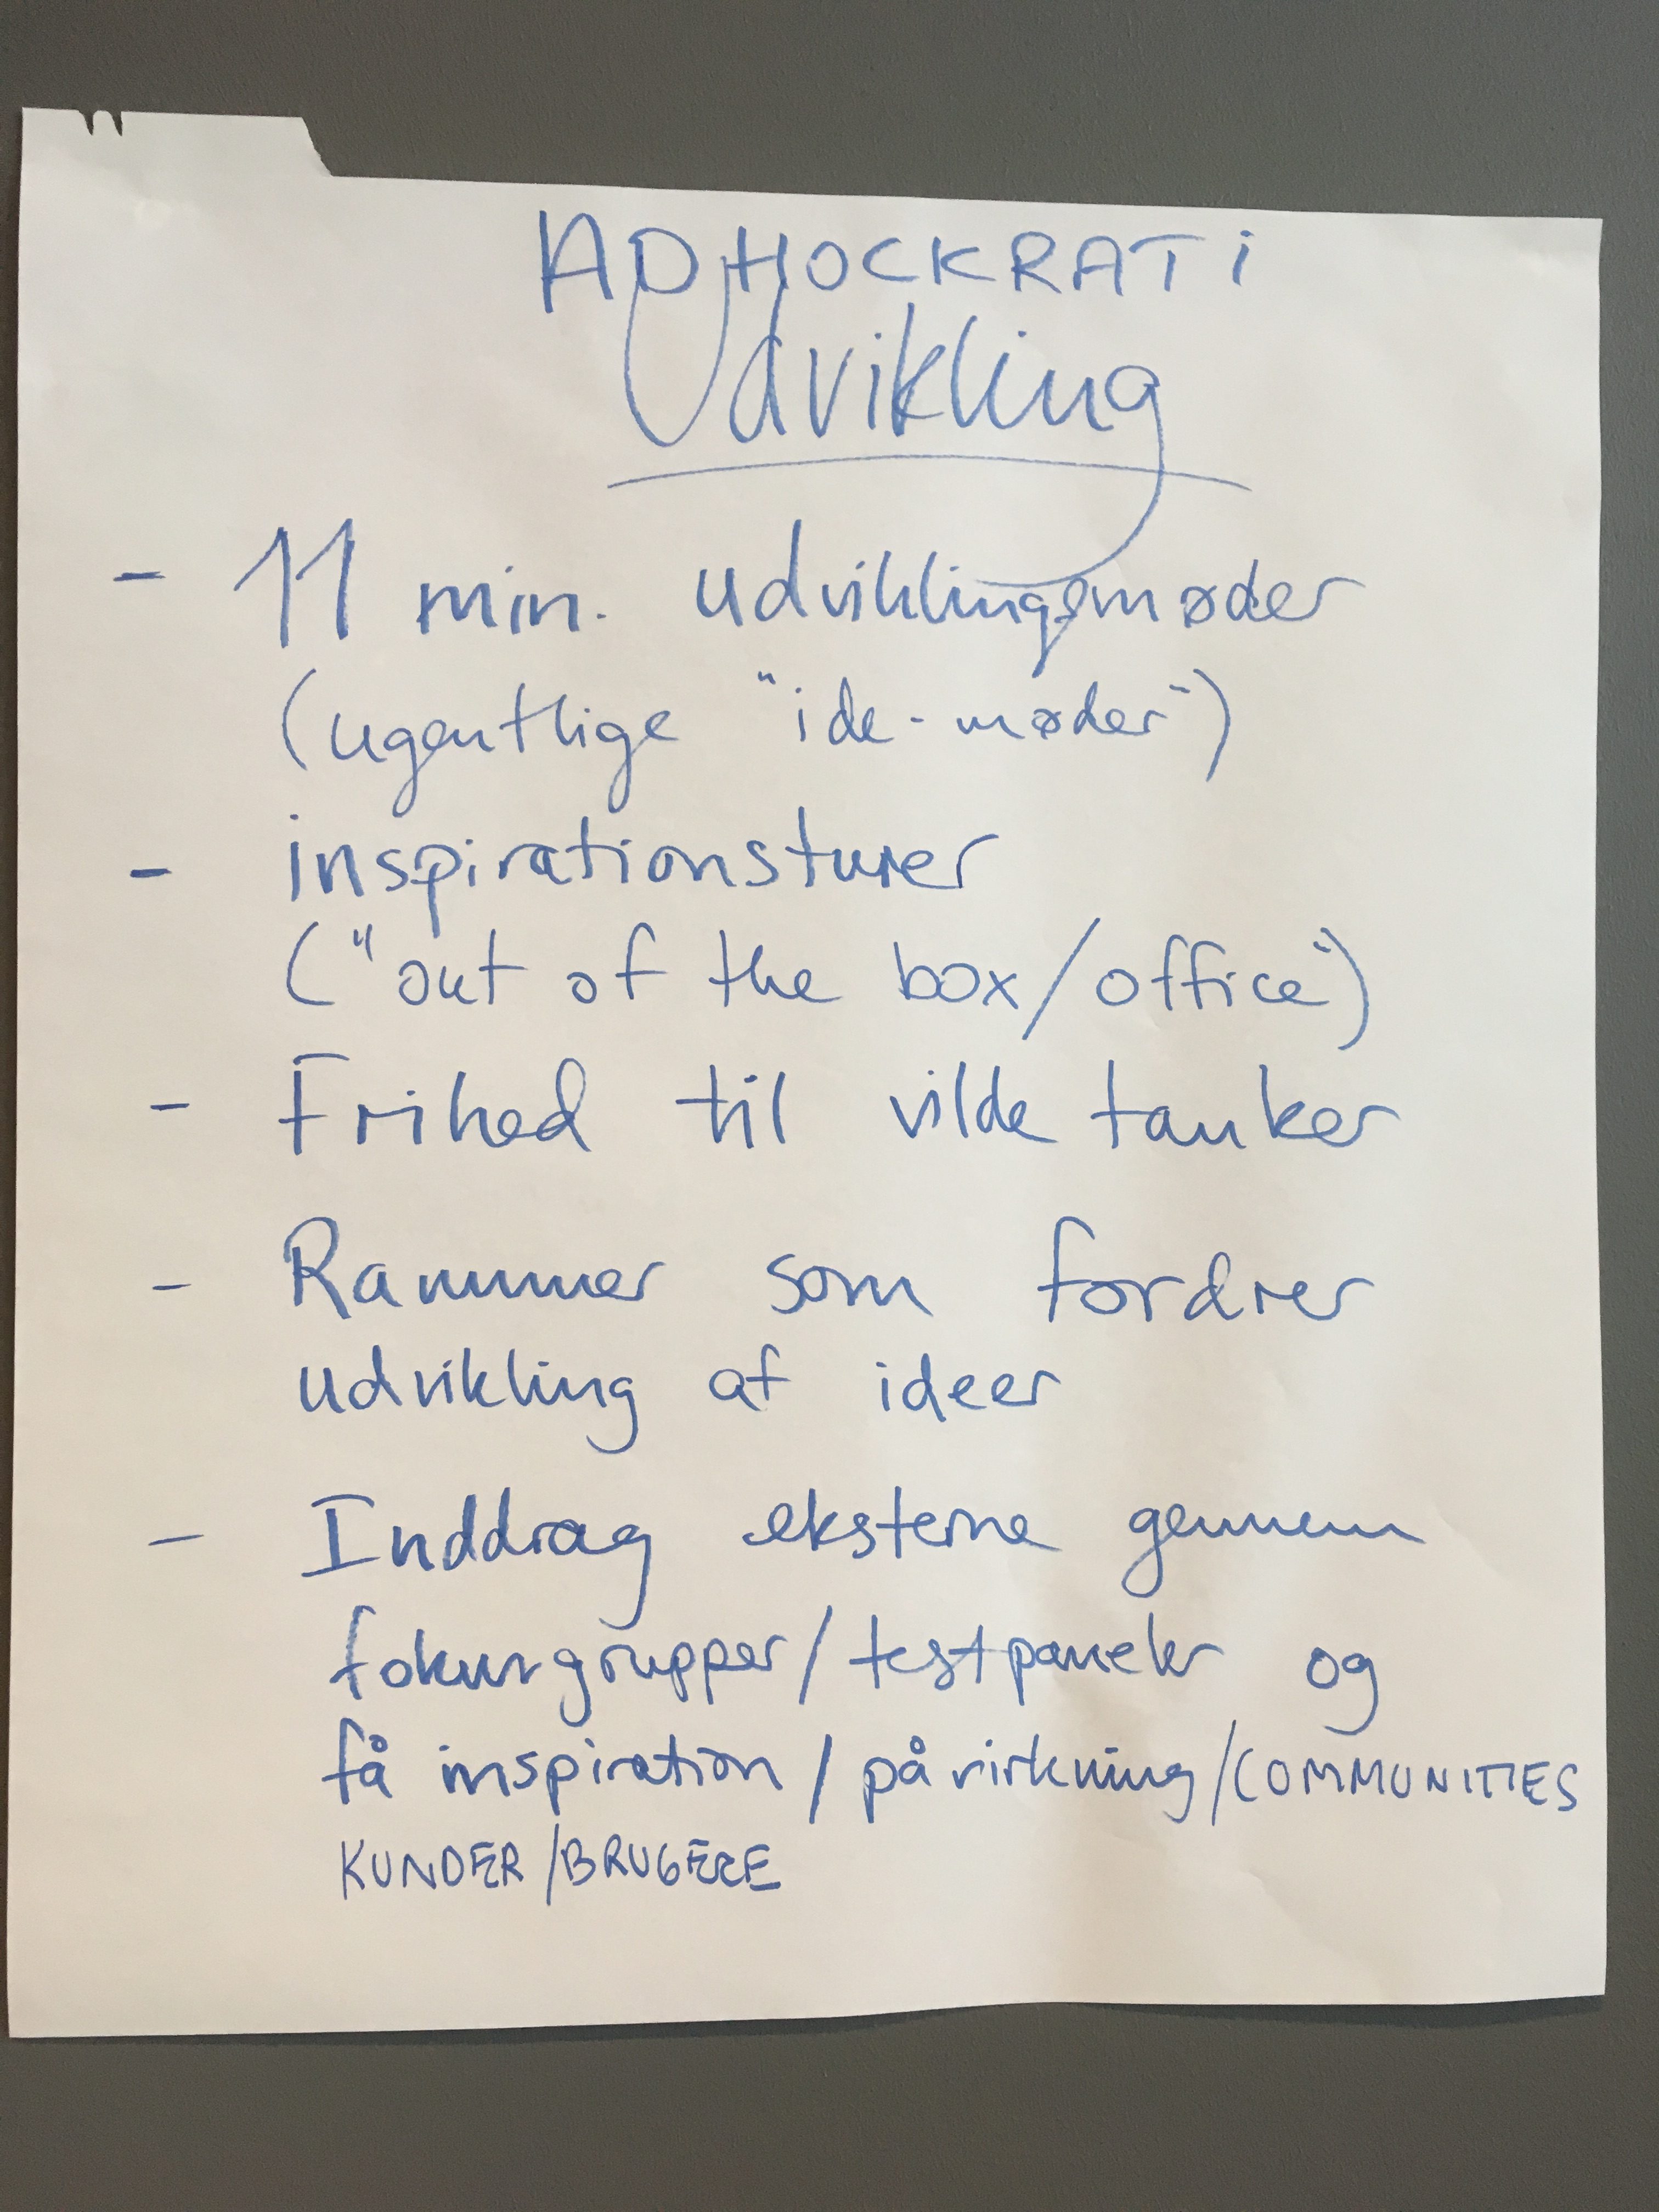 ADHOCKRATI
Udvikling
- 11 min. udviklingsmøder
(ugentlige "ide-møder")
- inspirationsturer
("out of the box/office")
- Frihed til vilde tanker
- Rammer som fordrer
udvikling af ideer
- Inddrag eksterne gennem
fokusgrupper/testpaneler og
få inspiration/påvirkning/COMMUNITIES
KUNDER/BRUGERE